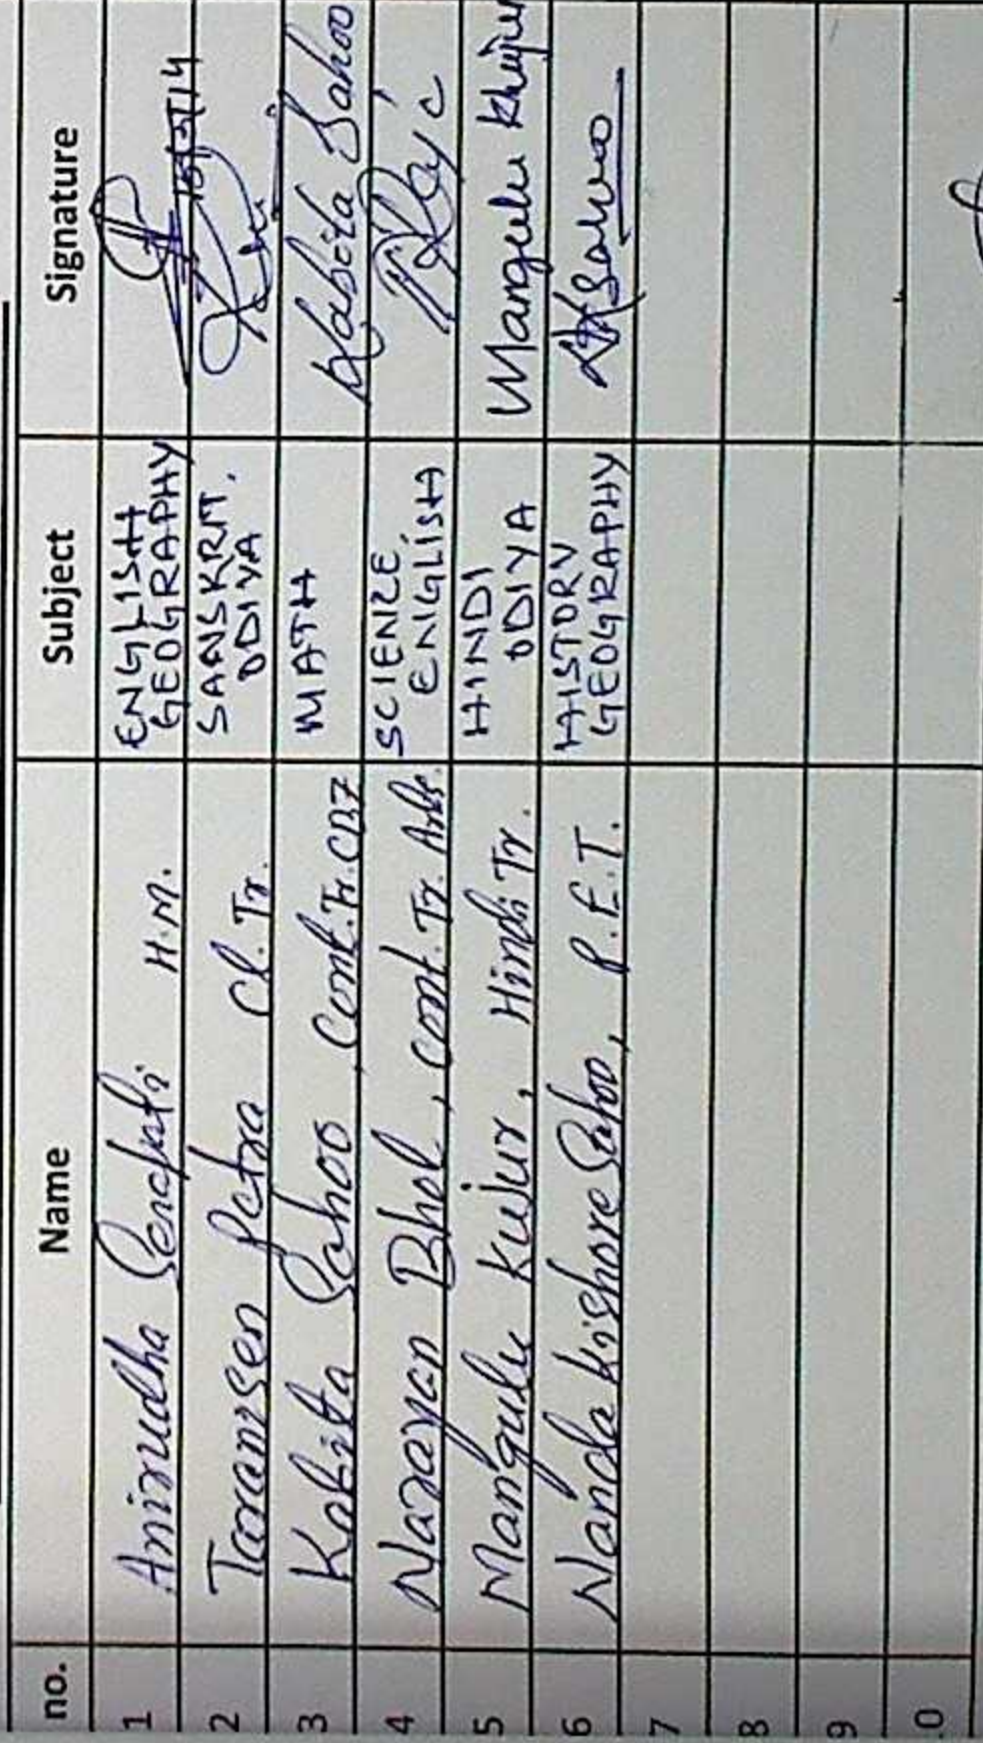 no. Name Subject Signature
1 Anirudha Senapati H.M. ENGLISH
GEOGRAPHY
2 Taranisen Patra Cl. Tr. SANSKRIT,
ODIYA
3 Kabita Sahoo, Cont. Tr. CBZ MATH Kabita Sahoo
4 Narayan Bhol, Cont. Tr. Arts. SCIENCE,
ENGLISH
5 Mangulu Kujur, Hindi Tr. HINDI
ODIYA Mangulu Khujur
6 Nanda Kishore Sahoo, P.E.T. HISTORY
GEOGRAPHY
7
8
9
0